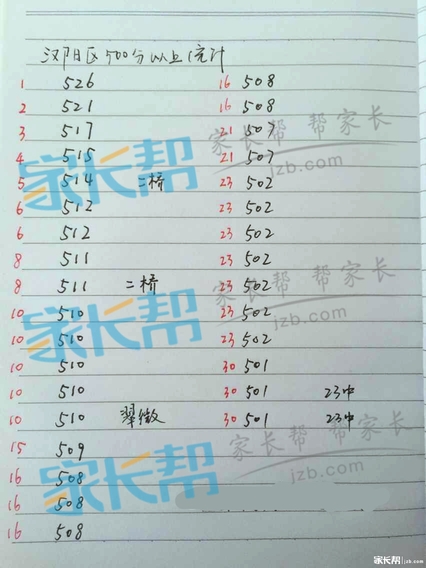 汉阳区500分以上统计
1 526
2 521
3 517
4 515
5 514 二桥
6 512
6 512
8 511
8 511 二桥
10 510
10 510
10 510
10 510
10 510 翠微
15 509
16 508
16 508
16 508
16 508
16 508
21 507
21 507
23 502
23 502
23 502
23 502
23 502
23 502
23 502
30 501
30 501 23中
30 501 23中
家长帮
家长帮
家长帮
帮家长
jzb.com
帮家长
jzb.com
帮家长
jzb.com
家长帮 jzb.com